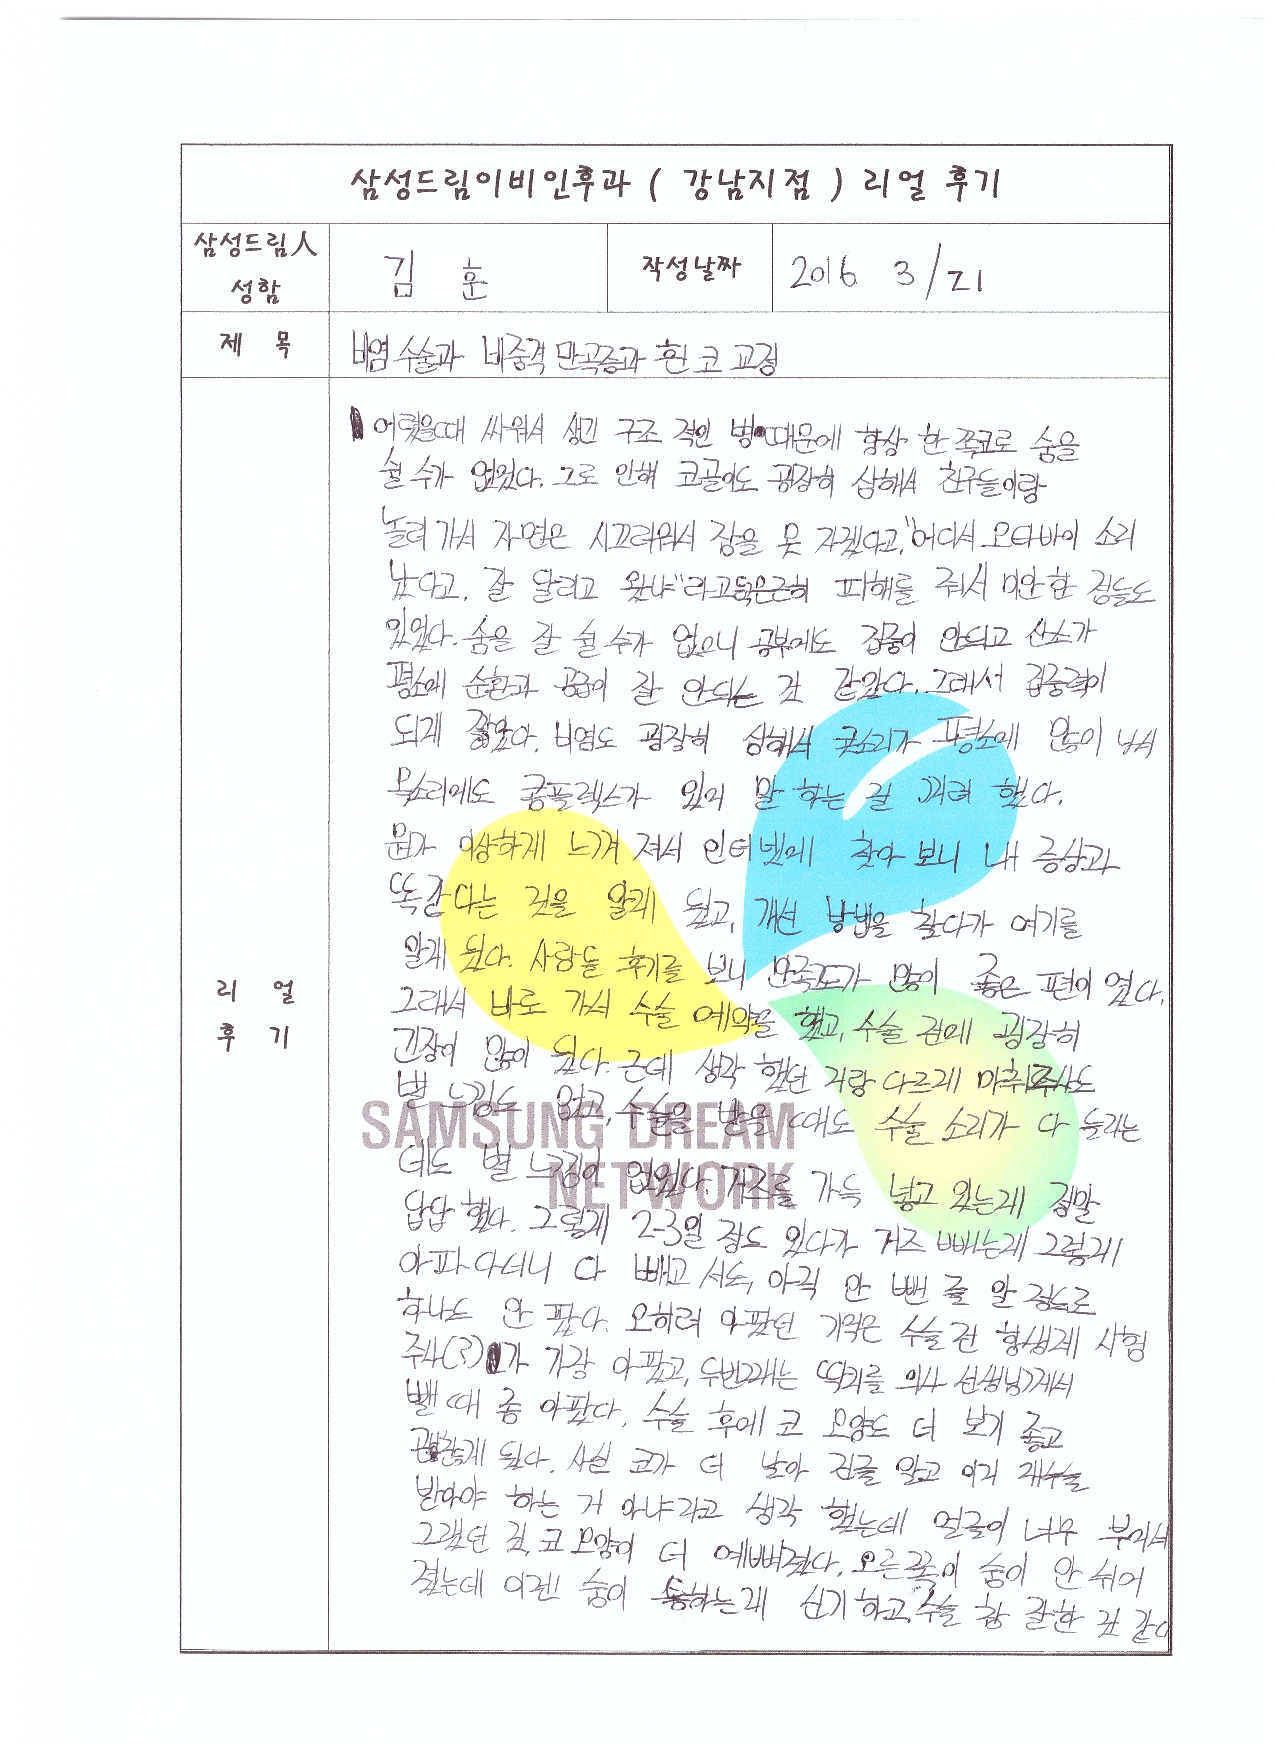 삼성드림이비인후과 ( 강남지점 ) 리얼 후기
삼성드림人 성함
김 훈
작성날짜
2016 3/21
제 목
비염 수술과 비중격 만곡증과 휜 코 교정
리 얼
후 기
어렸을때 싸워서 생긴 구조 적인 병때문에 항상 한 쪽코로 숨을
쉴 수가 없었다. 그로 인해 코골이도 굉장히 심해서 친구들이랑
놀러 가서 자면은 시끄러워서 잠을 못 자겠다고, "어디서 오타바이 소리
났다고, 잘 달리고 왔냐"라고 은근히 피해를 줘서 미안한 점들도
있었다. 숨을 잘 쉴 수가 없으니 공부에도 집중이 안되고 산소가
평소에 순환과 공급이 잘 안되는 것 같았다. 그래서 집중력이
되게 짧았다. 비염도 굉장히 심해서 콧소리가 평소에 많이 나서
목소리에도 콤플렉스가 있어 말 하는 걸 꺼려 했다.
뭔가 이상하게 느껴 져서 인터넷에 찾아 보니 내 증상과
똑같 다는 것을 알게 됬고, 개선 방법을 찾다가 여기를
알게 됬다. 사람들 후기를 보니 만족도가 많이 좋은 편이 였다.
그래서 바로 가서 수술 예약을 했고, 수술 전에 굉장히
긴장이 많이 됬다. 근데 생각 했던 거랑 다르게 마취주사도
별 느낌도 없고, 수술을 받을 때도 수술 소리가 다 들리는
데도 별 느낌이 없었다. 거즈를 가득 넣고 있는게 정말
답답 했다. 그렇게 2-3일 정도 있다가 거즈 빼는게 그렇게
아파 다더니 다 빼고 서도, 아직 안 뺀 줄 알 정도로
하나도 안 팠다. 오히려 아팠던 기억은 수술 전 항생제 시험
주사(?)가 가장 아팠고, 두번째는 딱지를 의사 선생님께서
뺄 때 좀 아팠다. 수술 후에 코 모양도 더 보기 좋고
괜찮게 됬다. 사실 코가 더 낮아 진줄 알고 이거 재수술
받아야 하는 거 아냐라고 생각 했는데 얼굴이 너무 부어서
그랬던 것, 코 모양이 더 예뻐졌다. 오른쪽이 숨이 안 쉬어
졌는데 이젠 숨이 통하는게 신기하고, 수술 참 잘한 것 같다
SAMSUNG DREAM
NETWORK